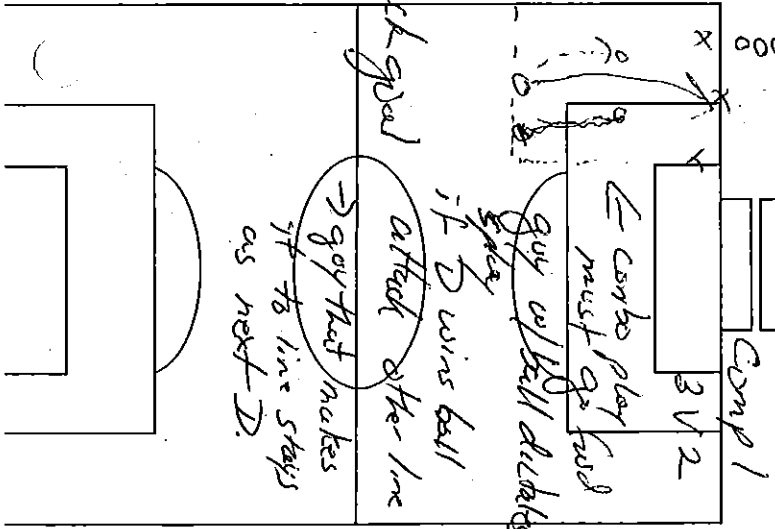 Comp 1
3 V 2
← Combo play
must go fwd
guy w/ ball dictates
if D wins ball
attack other line
→ guy that makes
it to line stays
as next D.